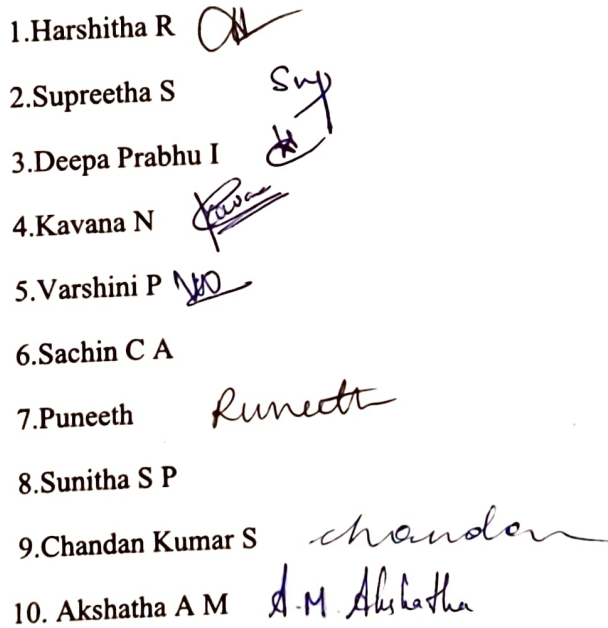 1.Harshitha R
2.Supreetha S Sup
3.Deepa Prabhu I
4.Kavana N Kavana
5.Varshini P
6.Sachin C A
7.Puneeth Puneeth
8.Sunitha S P
9.Chandan Kumar S chandan
10. Akshatha A M A.M Akshatha